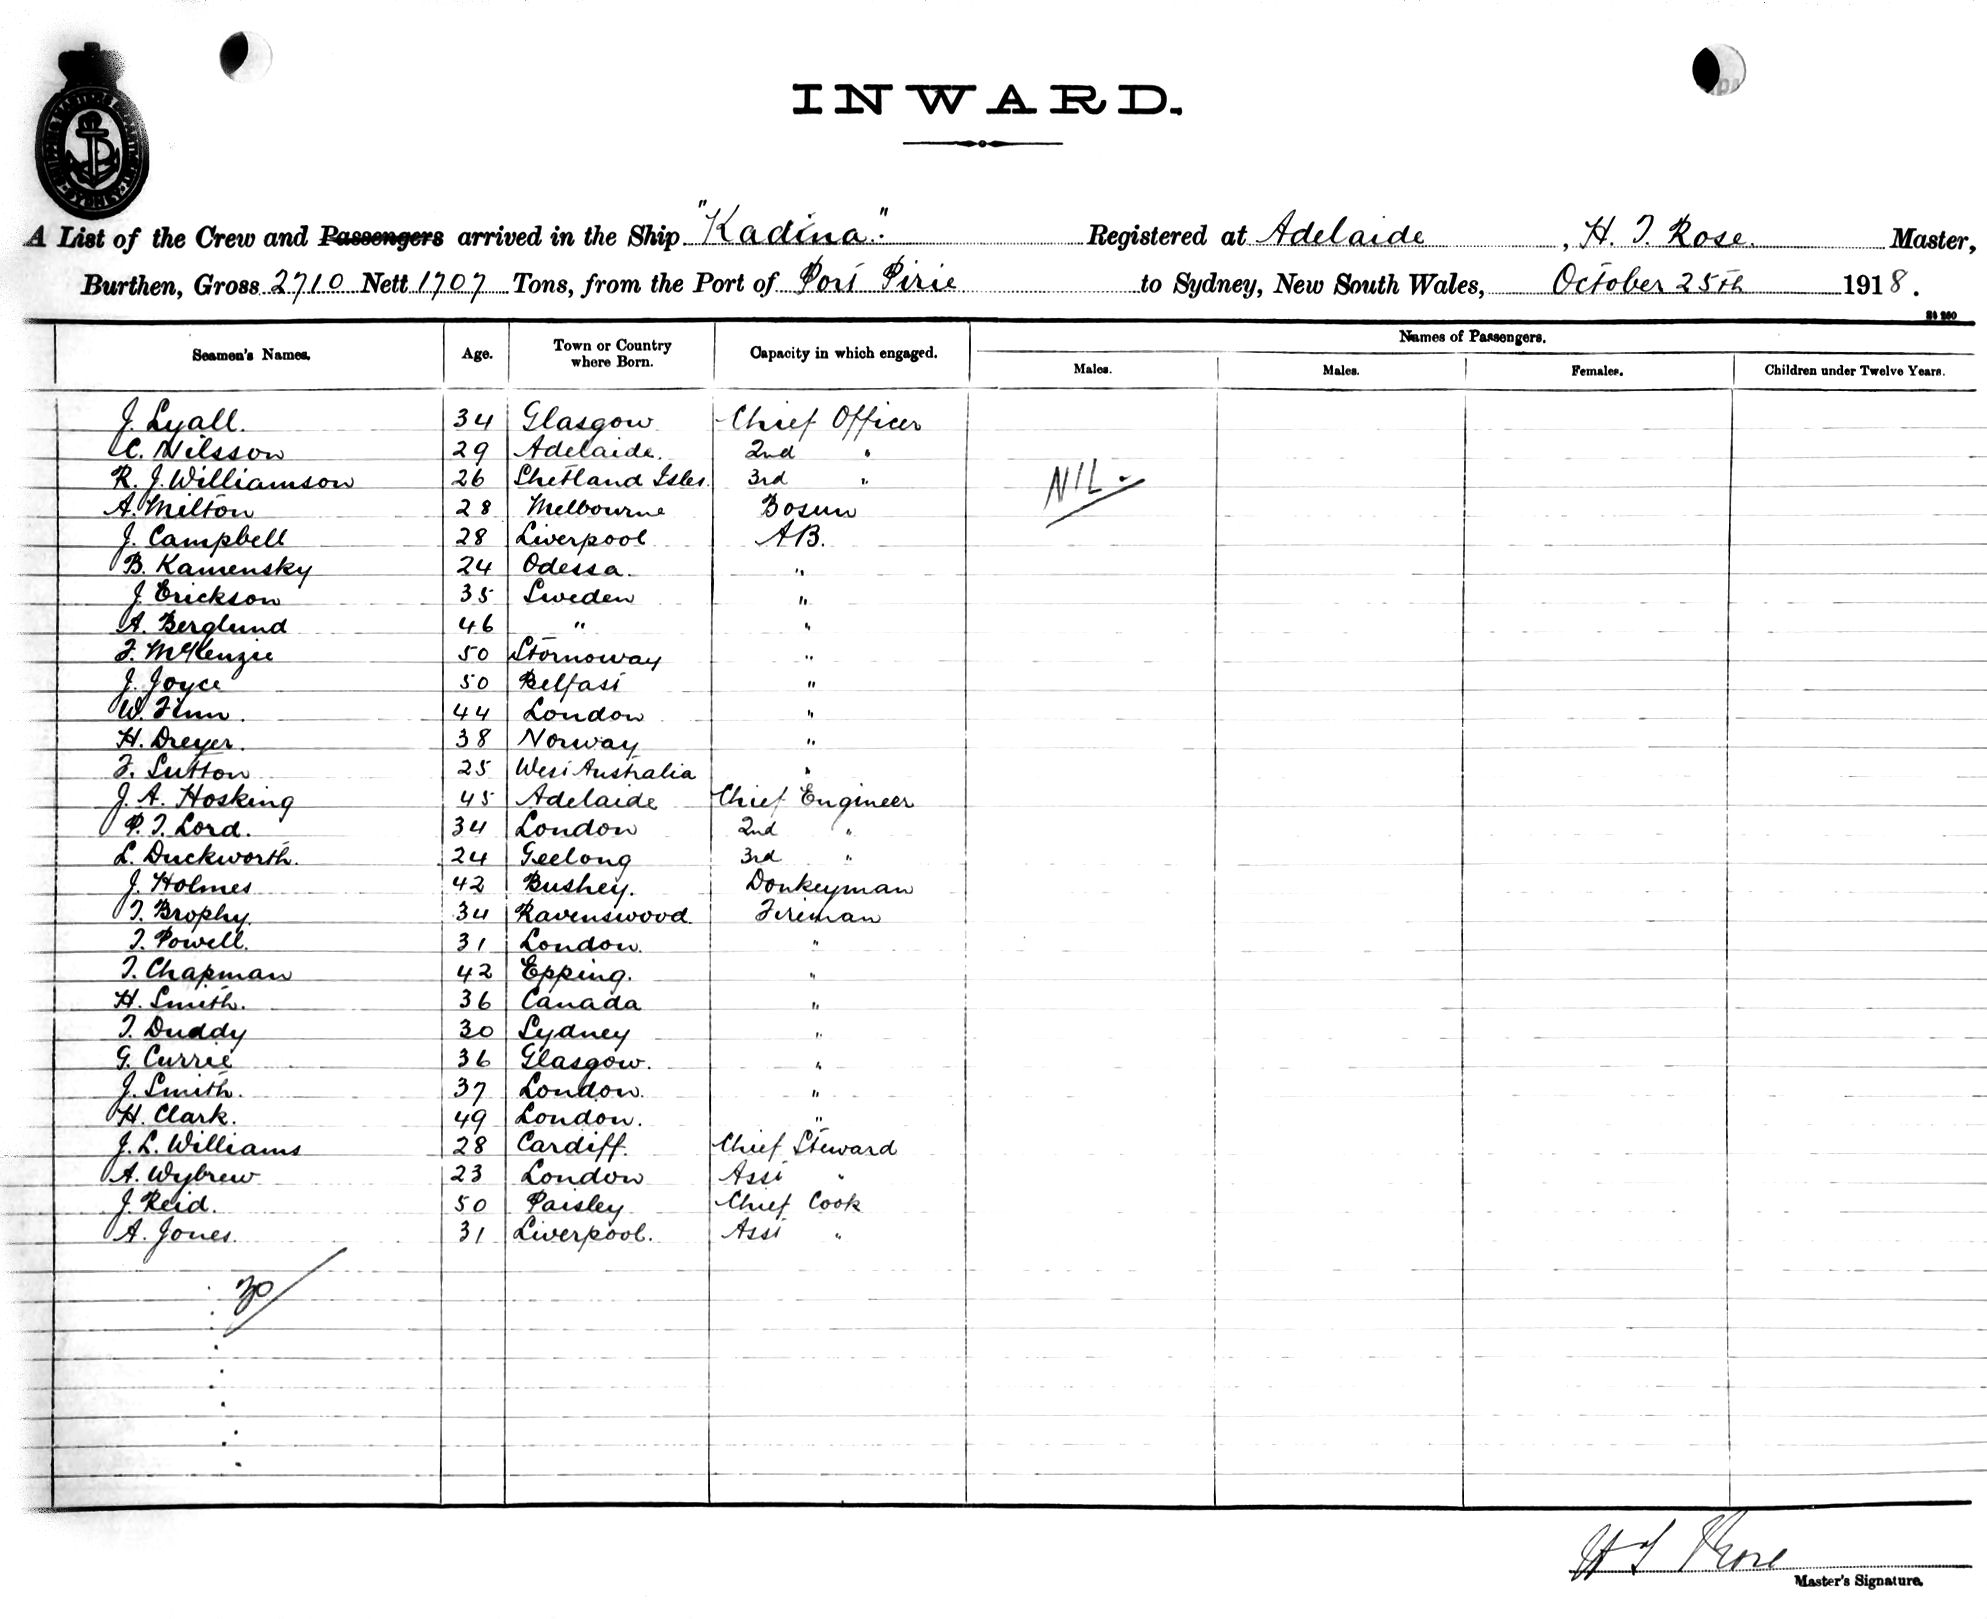 INWARD.
A List of the Crew and Passengers arrived in the Ship "Kadina". Registered at Adelaide, H. T. Rose. Master,
Burthen, Gross 2710 Nett 1707 Tons, from the Port of Port Pirie to Sydney, New South Wales, October 25th 1918.
Seamen's Names. Age. Town or Country where Born. Capacity in which engaged. Names of Passengers.
Males. Males. Females. Children under Twelve Years.
J. Lyall. 34 Glasgow Chief Officer
C. Nilsson 29 Adelaide. 2nd "
R. J. Williamson 26 Shetland Isles. 3rd " NIL.
A. Milton 28 Melbourne Bosun
J. Campbell 28 Liverpool AB.
B. Kamensky 24 Odessa. "
J. Erickson 35 Sweden "
A. Berglund 46 " "
F. McKenzie 50 Stornoway "
J. Joyce 50 Belfast "
W. Finn. 44 London "
H. Dreyer. 38 Norway "
F. Sutton 25 West Australia "
J. A. Hosking 45 Adelaide Chief Engineer
P. T. Lord. 34 London 2nd "
L. Duckworth. 24 Geelong 3rd "
J. Holmes 42 Bushey. Donkeyman
T. Brophy. 34 Ravenswood. Fireman
T. Powell. 31 London. "
T. Chapman 42 Epping. "
H. Smith. 36 Canada "
T. Duddy 30 Sydney "
G. Currie 36 Glasgow. "
J. Smith. 37 London. "
H. Clark. 49 London. "
J. L. Williams 28 Cardiff. Chief Steward
A. Wybrew 23 London Asst "
J. Reid. 50 Paisley Chief Cook
A. Jones. 31 Liverpool. Asst "
30
H T Rose
Master's Signature.